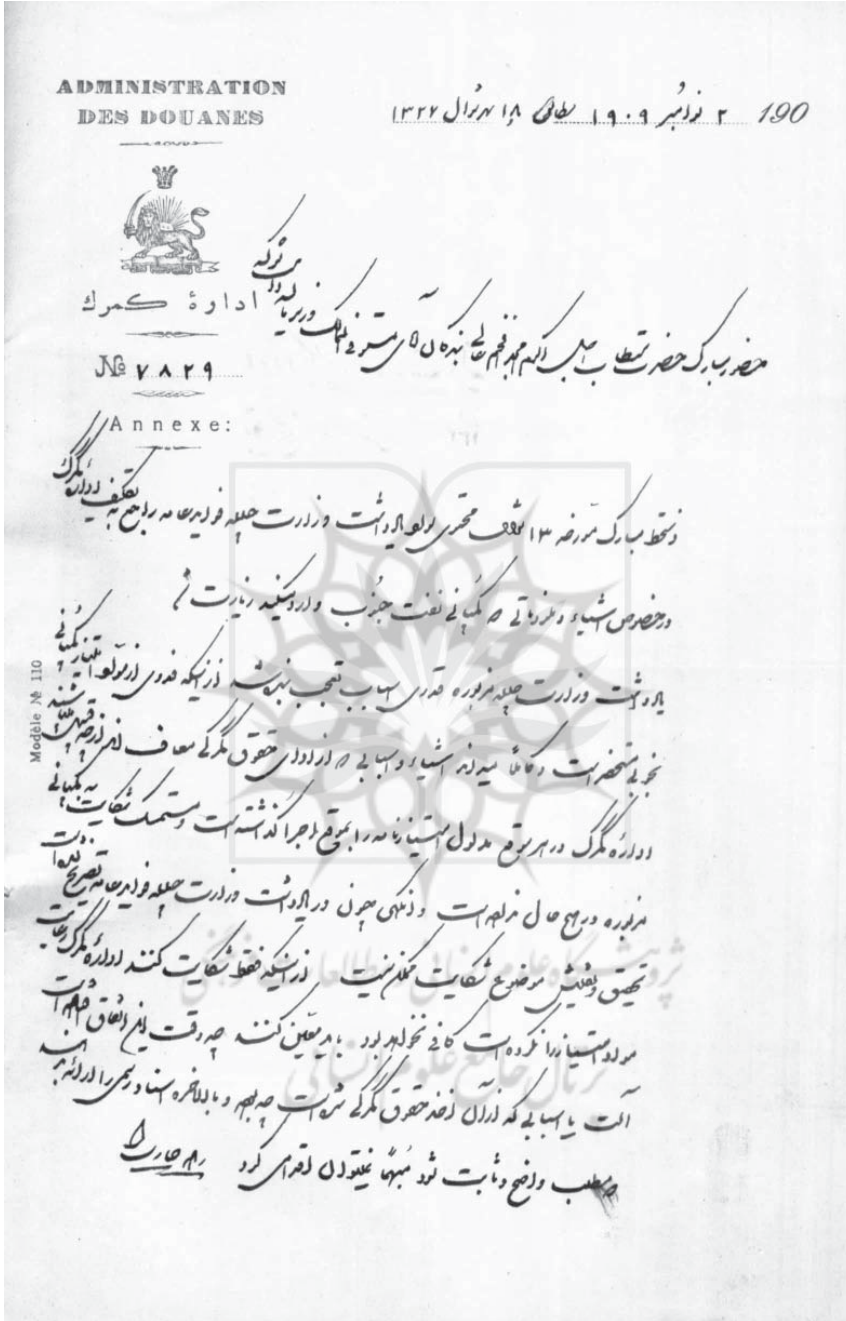 ADMINISTRATION
DES DOUANES
۲ نوامبر ۱۹۰۹ مطابق ۱۸ شوال ۱۳۲۷ 190
ادارهٔ کمرك
№ ۷۸۲۹
Annexe:
حضور مبارک حضرت مستطاب اجل اکرم امجد افخم عالی بندگان آقای مستوفی الممالک وزیر مالیه دامت شوکته
دستخط مبارک مورخه ۱۳ شوال محتوی سواد یادداشت وزارت جلیله فواید عامه راجع به تکلیف ادارهٔ گمرک
در خصوص اشیاء و ملزوماتی که کمپانی نفت جنوب وارد میکنند زیارت شد
یادداشت وزارت جلیله مزبوره قدری اسباب تعجب بنده شد از اینکه فدوی از مواد امتیاز کمپانی
بخوبی مستحضر است و کاملاً میداند اشیاء و اسبابی که از ادای حقوق گمرکی معاف اند از چه قبیل میباشند
ادارهٔ گمرک در هر موقع مدلول امتیازنامه را بموقع اجرا گذاشته است و مستمسک شکایت به کمپانی
مزبوره در هیچ حال نداده است وانگهی چون در یادداشت وزارت جلیله فواید عامه تصریح نشده است
تحقیق و تفتیش موضوع شکایت ممکن نیست از اینکه فقط شکایت کنند ادارهٔ گمرک رعایت
مواد امتیاز را نکرده است کافی نخواهد بود باید معین کنند چه وقت این اتفاق افتاده است
آلت یا اسبابی که از آن اخذ حقوق گمرکی شده است چه بوده و بالاخره اسناد رسمی را ارائه بدهند
که مطلب واضح و ثابت شود مبهماً نمیتوان اقدامی کرد
Modèle № 110
پژوهشگاه علوم انسانی و مطالعات فرهنگی
پرتال جامع علوم انسانی